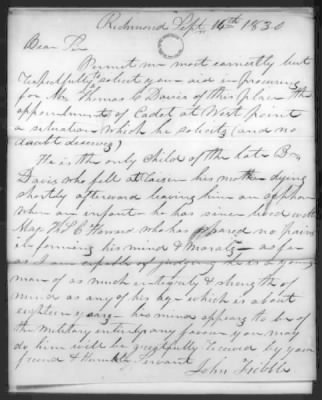 Richmond Sept. 16th 1830
Dear Sir
Permit me most earnestly but
respectfully to solicit your aid in procuring
for Mr Thomas C Davis of this place the
appointment of Cadet at West point
a situation which he solicits (and no
doubt deserves)
He is the only Child of the late
Davis who fell at his mother dying
shortly afterward leaving him an orphan
when an infant he has since lived with
Majr Howard who has spared no pains
in forming his mind & morals - as far
as I am capable of judging he is a young
man of as much integrity & strength of
mind as any of his age which is about
eighteen years - his mind appears to be of
the military order any favour you may
do him will be greatfully received by your
friend & Humble Servant
John Tribble